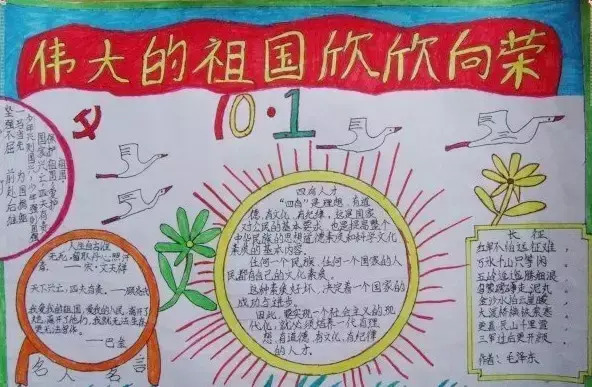 伟大的祖国欣欣向荣
10·1
四有人才
"四有"是理想、有道
德、有文化、有纪律，这是国家
对公民的基本要求，也是提高整个
中华民族的思想道德素质和科学文化
素质的基本内容。
任何一个民族、任何一个国家的人
民都有自己的文化素质，
这种素质好坏，决定着一个国家的
成功与进步。
因此，要实现一个社会主义的现
代化，就必须培养一代有理
想、有道德、有文化、有纪律
的人才。
人生自古谁
无死，留取丹心照汗
青。宋·文天祥
天下兴亡，匹夫有责。——顾炎武
我爱我的祖国，爱我的人民，离开了
她，离开了他们，我就无法生存，
更无法写作。
——巴金
名人名言
长征
红军不怕远征难，
万水千山只等闲
五岭逶迤腾细浪
乌蒙磅礴走泥丸
金沙水拍云崖暖
大渡桥横铁索寒
更喜岷山千里雪
三军过后尽开颜
作者：毛泽东